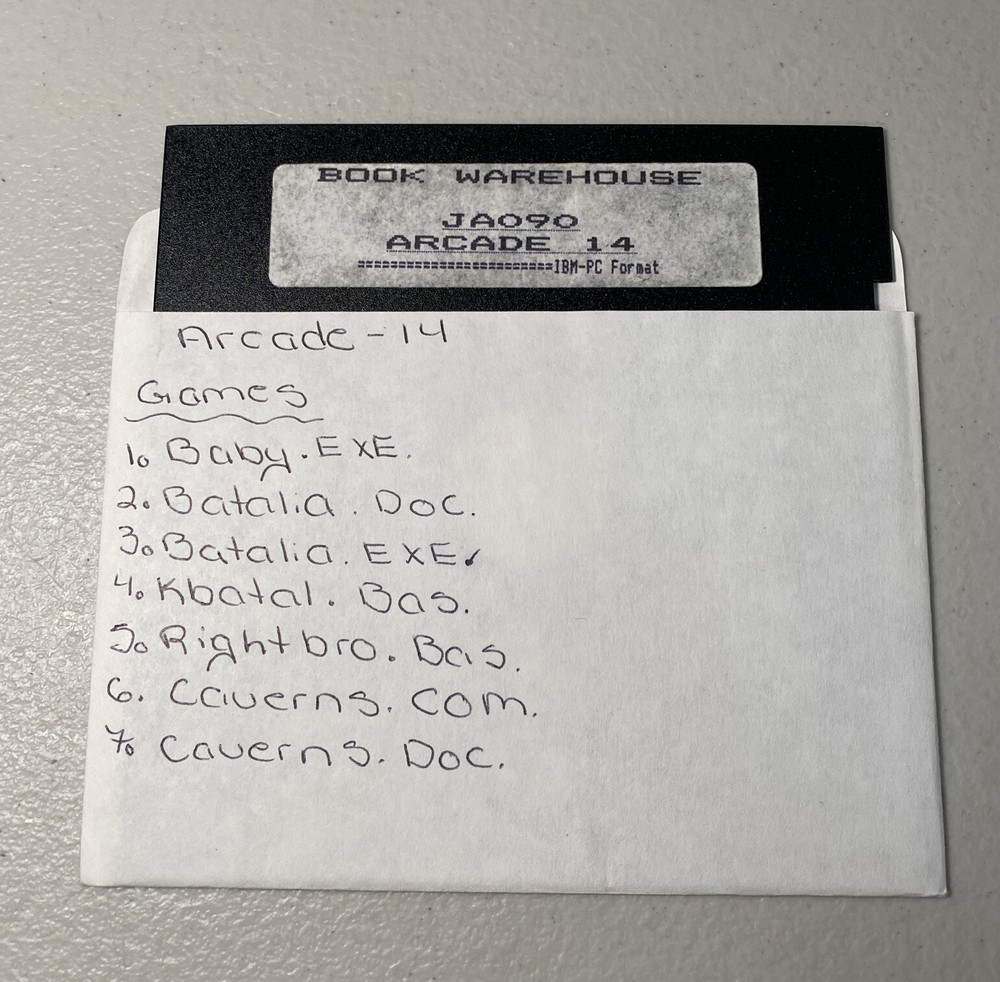 BOOK WAREHOUSE
JA090
ARCADE 14
========================IBM-PC Format
Arcade - 14
Games
1. Baby. EXE.
2. Batalia. DOC.
3. Batalia. EXE.
4. Kbatal. Bas.
5. Rightbro. Bas.
6. Caverns. COM.
7. Caverns. DOC.